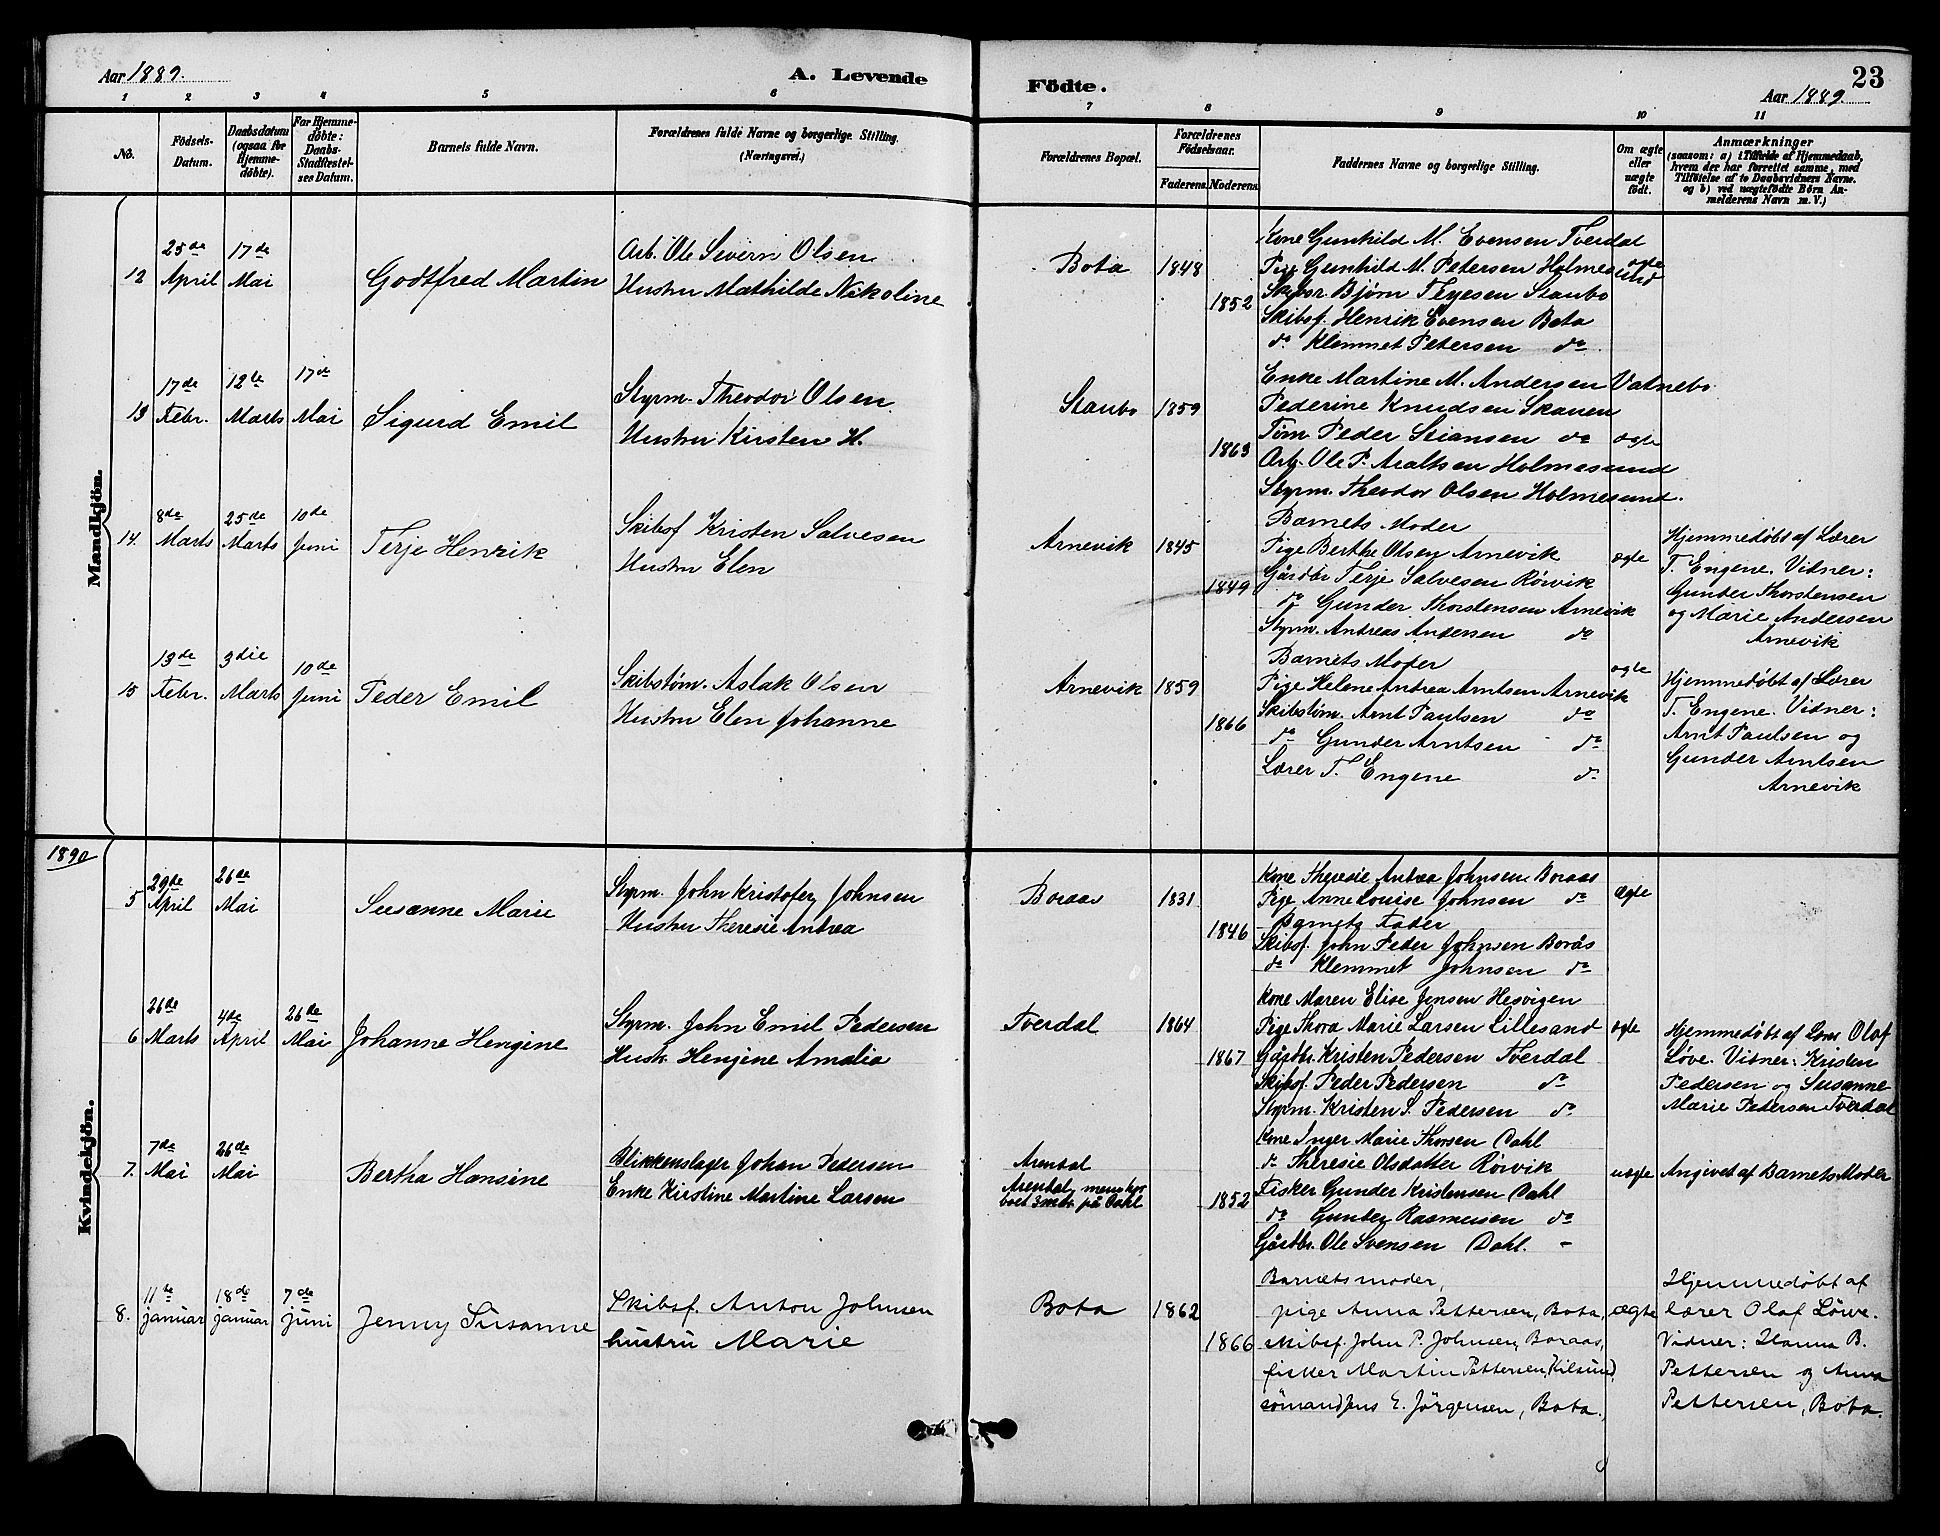 Aar 1889.
A. Levende
Födte.
23
Aar 1889.
1 2 3 4 5 6 7 8 9 10 11
No.
Födsels-
Datum.
Daabsdatum
(ogsaa for
Hjemme-
døbte).
For Hjemme-
døbte:
Daabs-
Stadfæstel-
ses Datum.
Barnets fulde Navn.
Forældrenes fulde Navne og borgerlige Stilling.
(Næringsvei.)
Forældrenes Bopæl.
Forældrenes
Födselsaar.
Faderens.
Moderens.
Faddernes Navne og borgerlige Stilling.
Om ægte
eller
uægte
født.
Anmærkninger
(saasom: a) i Tilfælde af Hjemmedaab,
hvem der har forrettet samme, med
Tilføielse af to Daabsvidners Navne.
og b) ved uægtefødte Börn An-
melderens Navn m. V.)
Mandkjön.
12
25de
April
17de
Mai
Godtfred Martin
Arb. Ole Severin Olsen
Hustru Mathilde Nikoline
Bota
1848
1852
Kone Gunhild M. Evensen Tverdal
Pige Gunhild M. Petersen Holmesund
Bjørn Terjesen Staubo
Skibsf. Henrik Evensen Bota
do Klemmet Petersen do
ægte
13
17de
Febr.
12te
Marts
17de
Mai
Sigurd Emil
Styrm. Theodor Olsen
Hustru Kirsten H.
Staubo
1859
1863
Enke Martine M. Andersen Vatnebo
Pederine Knudsen Skauen
Tøm. Peder Stiansen do
Arb. Ole P. Araltsen Holmesund
Styrm. Theodor Olsen Holmesund.
ægte
14.
8de
Marts
25de
Marts
10de
Juni
Terje Henrik
Skibsf Kristen Salvesen
Hustru Elen
Arnevik
1845
1849
Barnets Moder
Pige Berthe Olsen Arnevik
Gårdbr Terje Salvesen Röivik
do Gunder Thorstensen Arnevik
Styrm. Andreas Andersen do
ægte
Hjemmedøbt af Lærer
T. Engene. Vidner:
Gunder Thorstensen
og Marie Andersen
Arnevik
15
13de
Febr.
3die
Marts
10de
Juni
Peder Emil
Skibstøm. Aslak Olsen
Hustru Elen Johanne
Arnevik
1859
1866
Barnets Moder
Pige Helene Andrea Arntsen Arnevik
Skibstøm. Arnt Paulsen do
do Gunder Arntsen do
Lærer T. Engene do
ægte
Hjemmedøbt af Lærer
T. Engene. Vidner:
Arnt Paulsen og
Gunder Arntsen
Arnevik
1890
Kvindekjön.
5
29de
April
26de
Mai
Susanne Marie
Styrm. John Kristofer Johnsen
Hustru Theresie Andrea
Boraas
1831
1846
Kone Theresie Andrea Johnsen Boraas
Pige Anne Louise Johnsen do
Barnets Fader
Skibsf. John Peder Johnsen Borås
do Klemmet Johnsen do
Ægte
6
26de
Marts
4de
April
26de
Mai
Johanne Hengine
Styrm. John Emil Pedersen
Hustr. Hengine Amalia
Tverdal
1864
1867
Kone Maren Elise Jensen Hesvigen
Pige Thora Marie Larsen Lillesand
Gårdbr. Kristen Pedersen Tverdal
Skibsf. Peder Pedersen do
Styrm. Kristen S. Pedersen do
ægte
Hjemmedøbt af Lærer Olaf
Løve. Vidner: Kristen
Pedersen og Susanne
Marie Pedersen Tverdal
7.
7de
Mai
26de
Mai
Bertha Hansine
Blikkenslager Johan Pedersen
Enke Kirstine Martine Larsen
Arendal
Arendal, men har
boet 3 mdr. på Dahl
1852
Kone Inger Marie Thorsen Dahl
do Theresie Olsdatter Röivik
Fisker Gunder Kristensen Dahl
do Gunder Rasmussen do
Gårdbr. Ole Svensen Dahl. -
uægte
Angivet af Barnets Moder
8.
11te
januar
18de
januar
7de
juni
Jenny Susanne
Skibsf. Anton Johnsen
hustru Marie
Bota
1862
1866
Barnets moder,
pige Anna Pettersen, Bota,
skibsf. John P. Johnsen, Boraas,
fisker Martin Pettersen, Kilsund,
sømand Jens E. Jörgensen, Bota.
ægte
Hjemmedøbt af
lærer Olaf Löwe.
Vidner: Hanna B.
Pettersen og Anna
Pettersen, Bota.